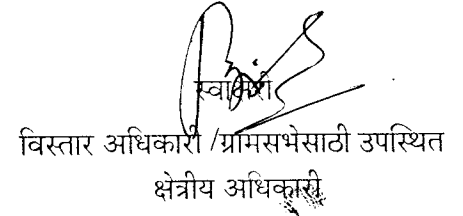 स्वाक्षरी
विस्तार अधिकारी /ग्रामसभेसाठी उपस्थित
क्षेत्रीय अधिकारी